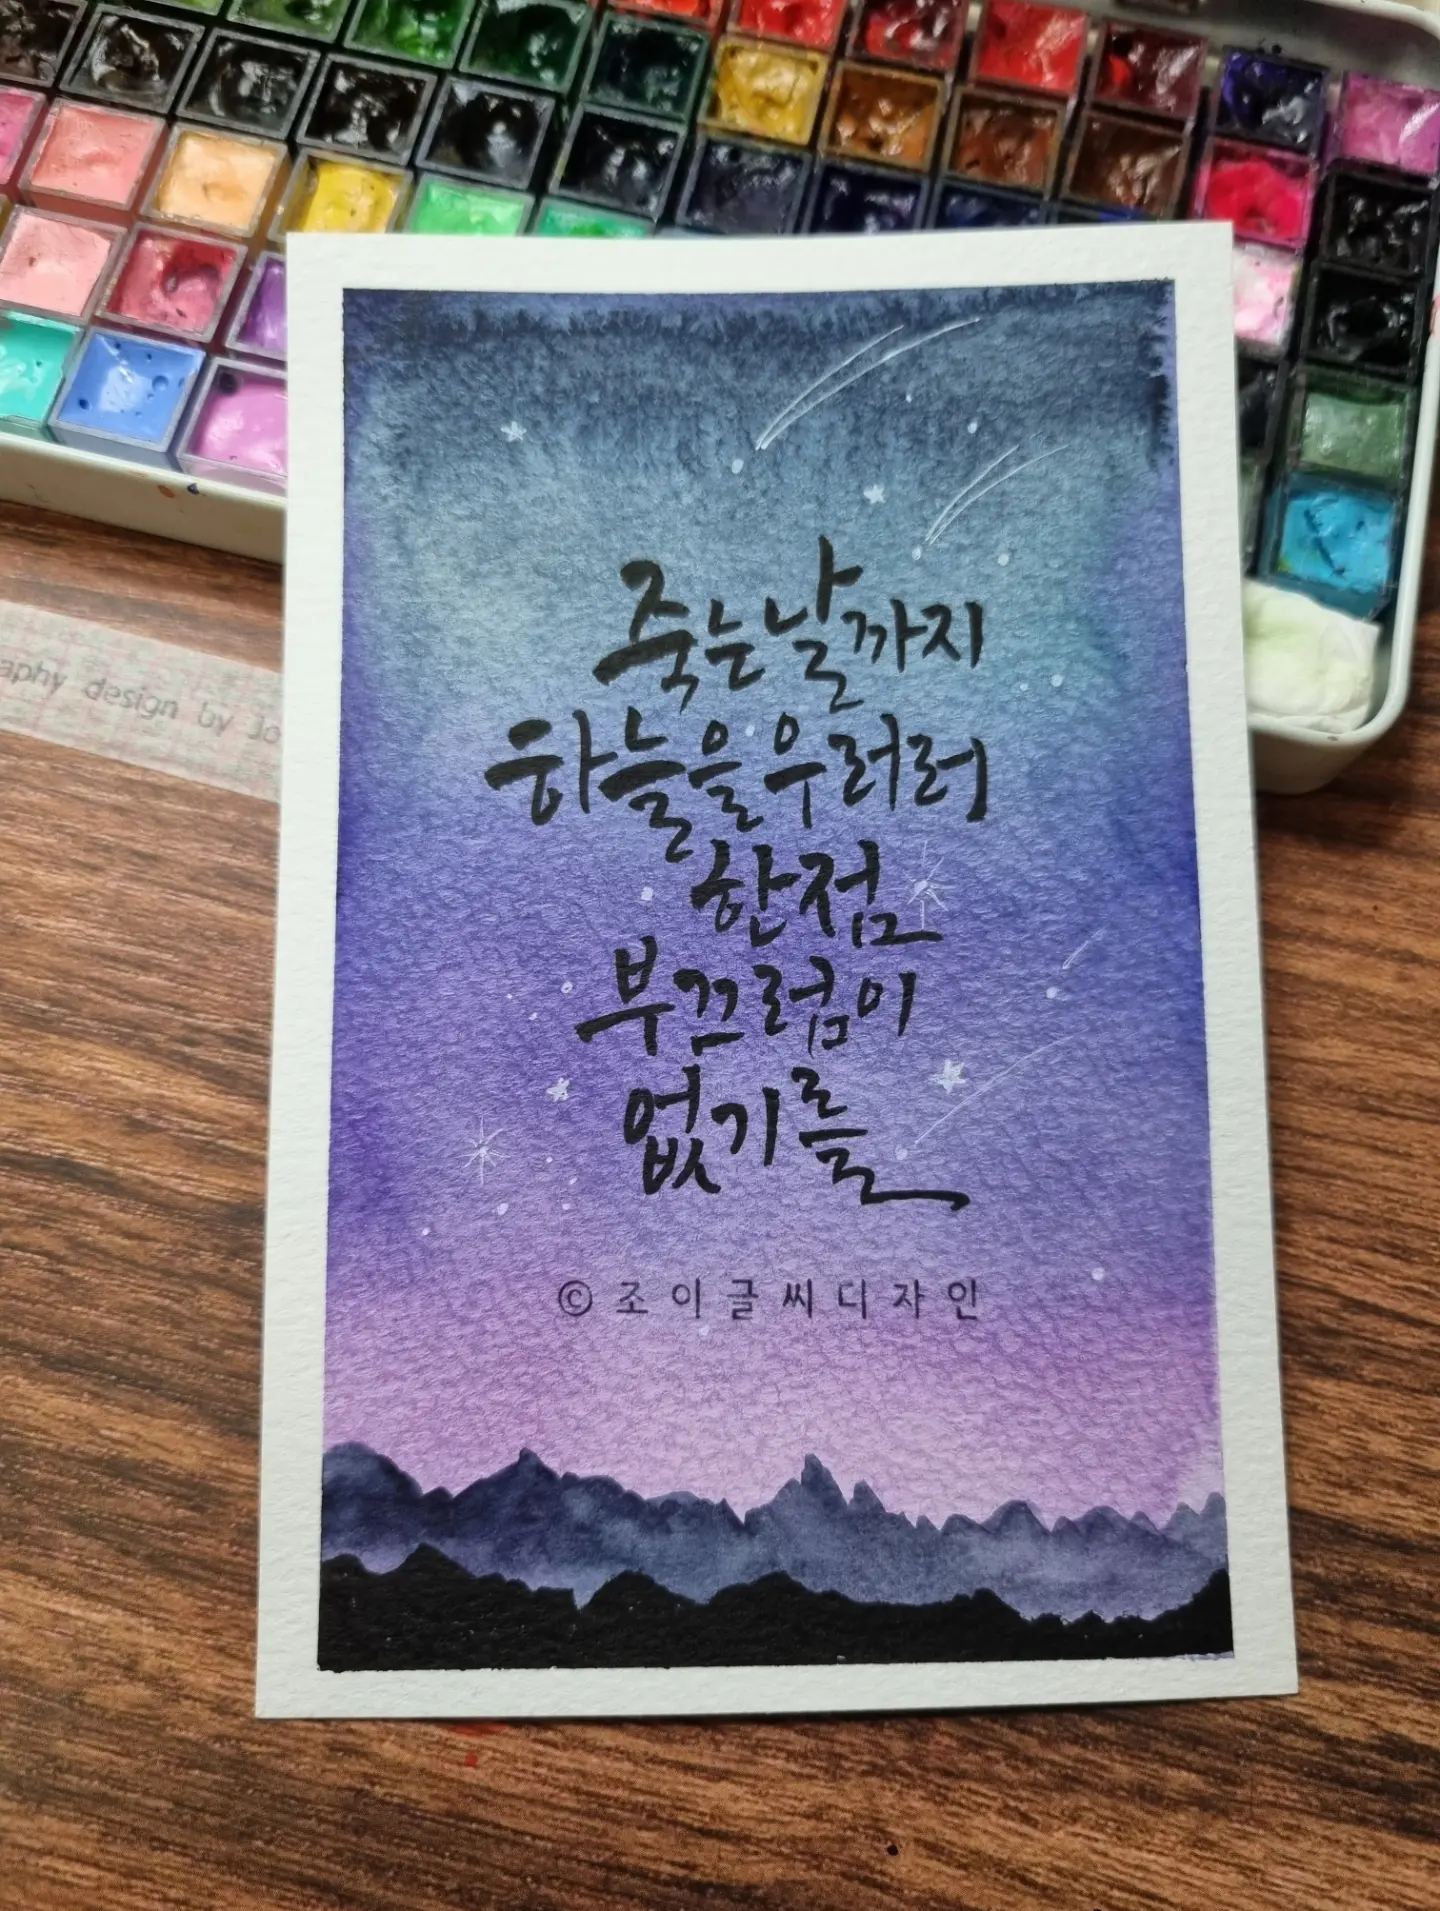 aphy design by Jo
죽는날까지
하늘을우러러
한점
부끄럼이
없기를
© 조이글씨디자인